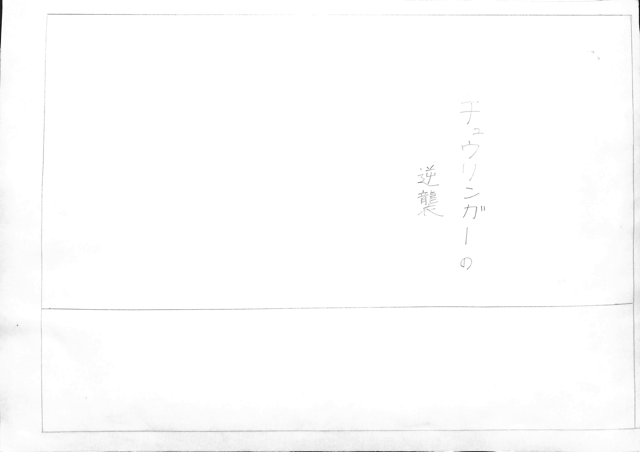 チュウリンガーの
逆襲